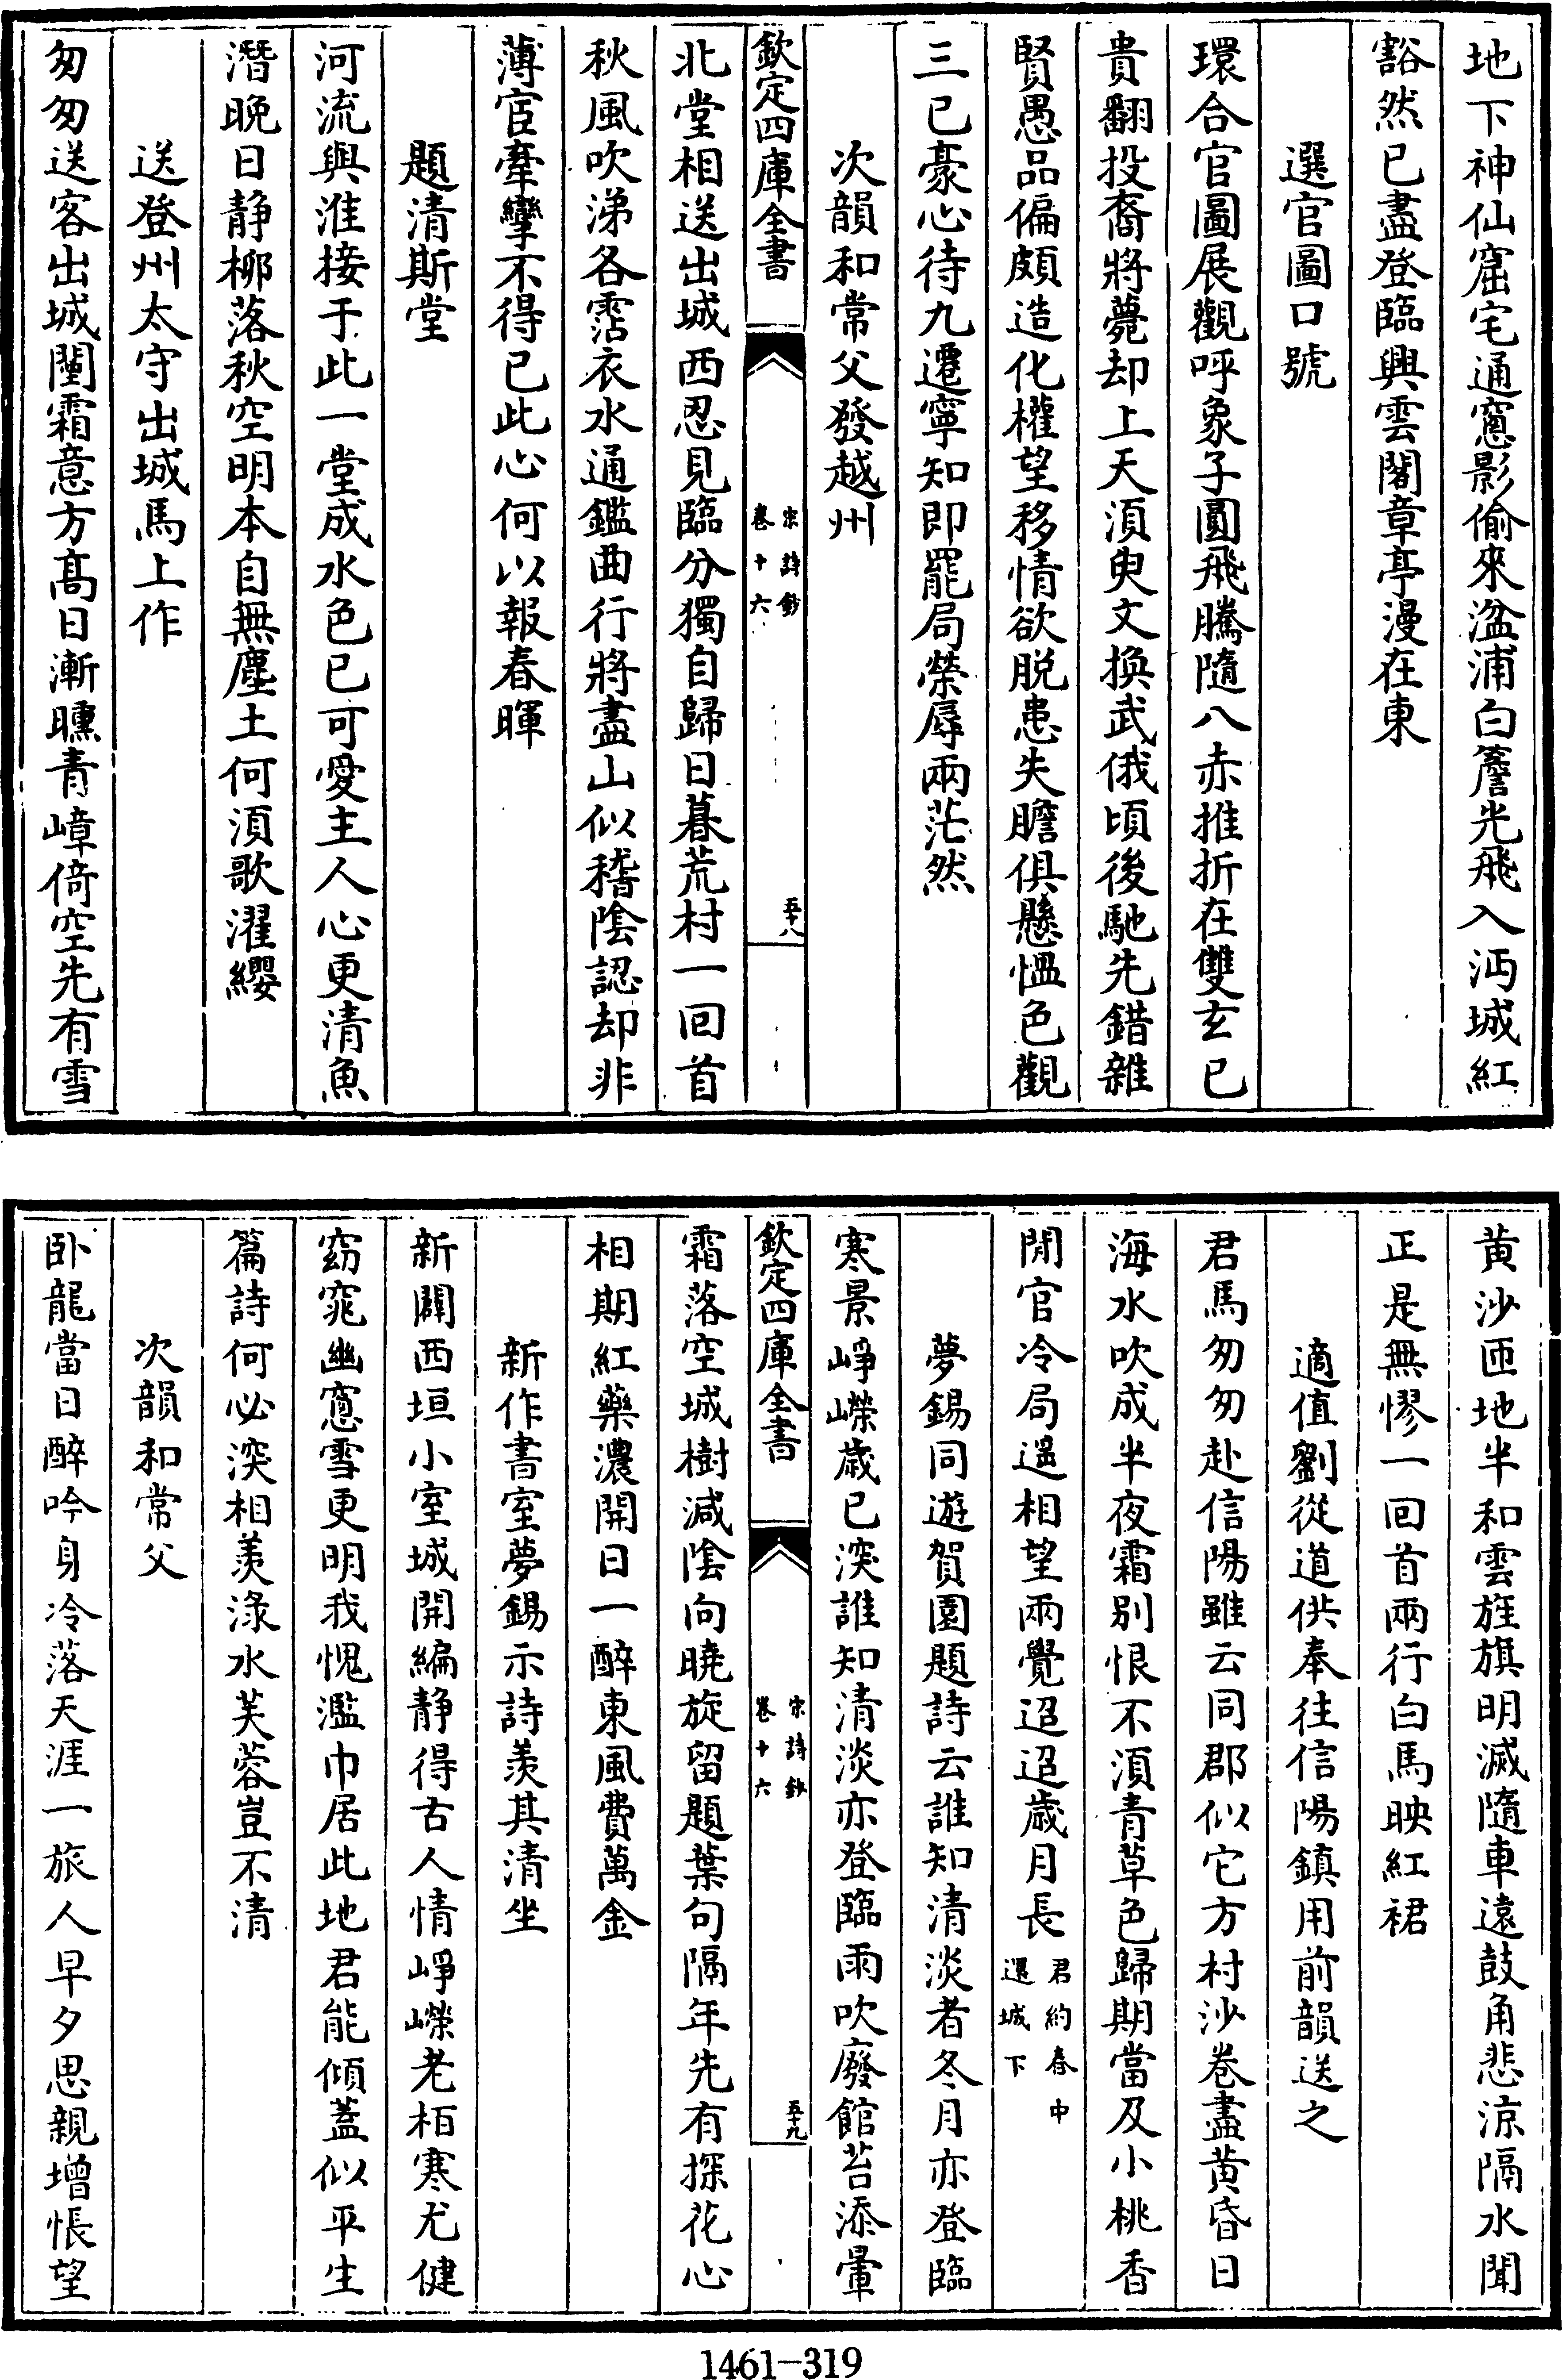 地下神仙窟宅通窻影偷來湓浦白簷光飛入沔城紅
豁然已盡登臨興雲閣章亭漫在東
選官圖口號
環合官圖展觀呼象子圓飛騰隨八赤推折在雙玄已
貴翻投裔將薨却上天湏臾文換武俄頃後馳先錯雜
賢愚品偏頗造化權望移情欲脱患失膽俱懸愠色觀
三已豪心待九遷寧知即罷局榮辱兩茫然
次韻和常父發越州
欽定四庫全書
宋詩鈔
卷十六
五十八
北堂相送出城西忍見臨分獨自歸日暮荒村一回首
秋風吹涕各霑衣水通鑑曲行將盡山似稽陰認却非
薄宦牽攣不得已此心何以報春暉
題清斯堂
河流與淮接于此一堂成水色已可愛主人心更清魚
潛晚日靜柳落秋空明本自無塵土何湏歌濯纓
送登州太守出城馬上作
匆匆送客出城闉霜意方髙日漸曛青嶂倚空先有雪
黄沙匝地半和雲旌旗明滅隨車逺鼓角悲涼隔水聞
正是無憀一回首兩行白馬映紅裙
適值劉從道供奉往信陽鎮用前韻送之
君馬匆匆赴信陽雖云同郡似它方村沙卷盡黄昏日
海水吹成半夜霜别恨不湏青草色歸期當及小桃香
閒官冷局遥相望兩覺迢迢歲月長君約春中還城下
夢錫同遊賀園題詩云誰知清淡者冬月亦登臨
寒景崢嶸歲已深誰知清淡亦登臨雨吹廢館苔添暈
欽定四庫全書
宋詩鈔
卷十六
五十九
霜落空城樹減陰向曉旋留題葉句隔年先有探花心
相期紅藥濃開日一醉東風費萬金
新作書室夢錫示詩羨其清坐
新闢西垣小室城開編静得古人情崢嶸老柏寒尤健
窈窕幽窻雪更明我愧濫巾居此地君能傾蓋似平生
篇詩何必深相羨淥水芙蓉豈不清
次韻和常父
卧龍當日醉吟身冷落天涯一旅人早夕思親增悵望
1461-319